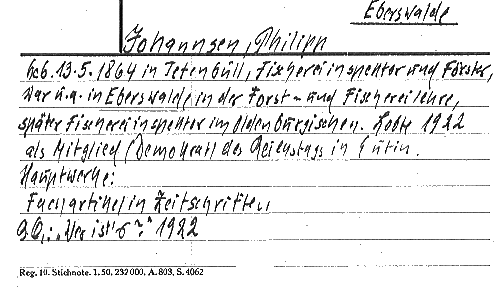 Eberswalde
Johannsen, Philipp
Geb. 13.5.1864 in Tetenbüll, Fischereiinspektor und Förster,
war u.a. in Eberswalde in der Forst- und Fischereilehre,
später Fischereiinspektor im Oldenburgischen. Lebte 1922
als Mitglied (Demokrat) des Reichstags in Eutin.
Hauptwerke:
Fachartikel in Zeitschriften,
Qu.: „Wer ist's?" 1922
Reg. 10. Stichnote. 1.50, 232000, A. 803, S. 4062